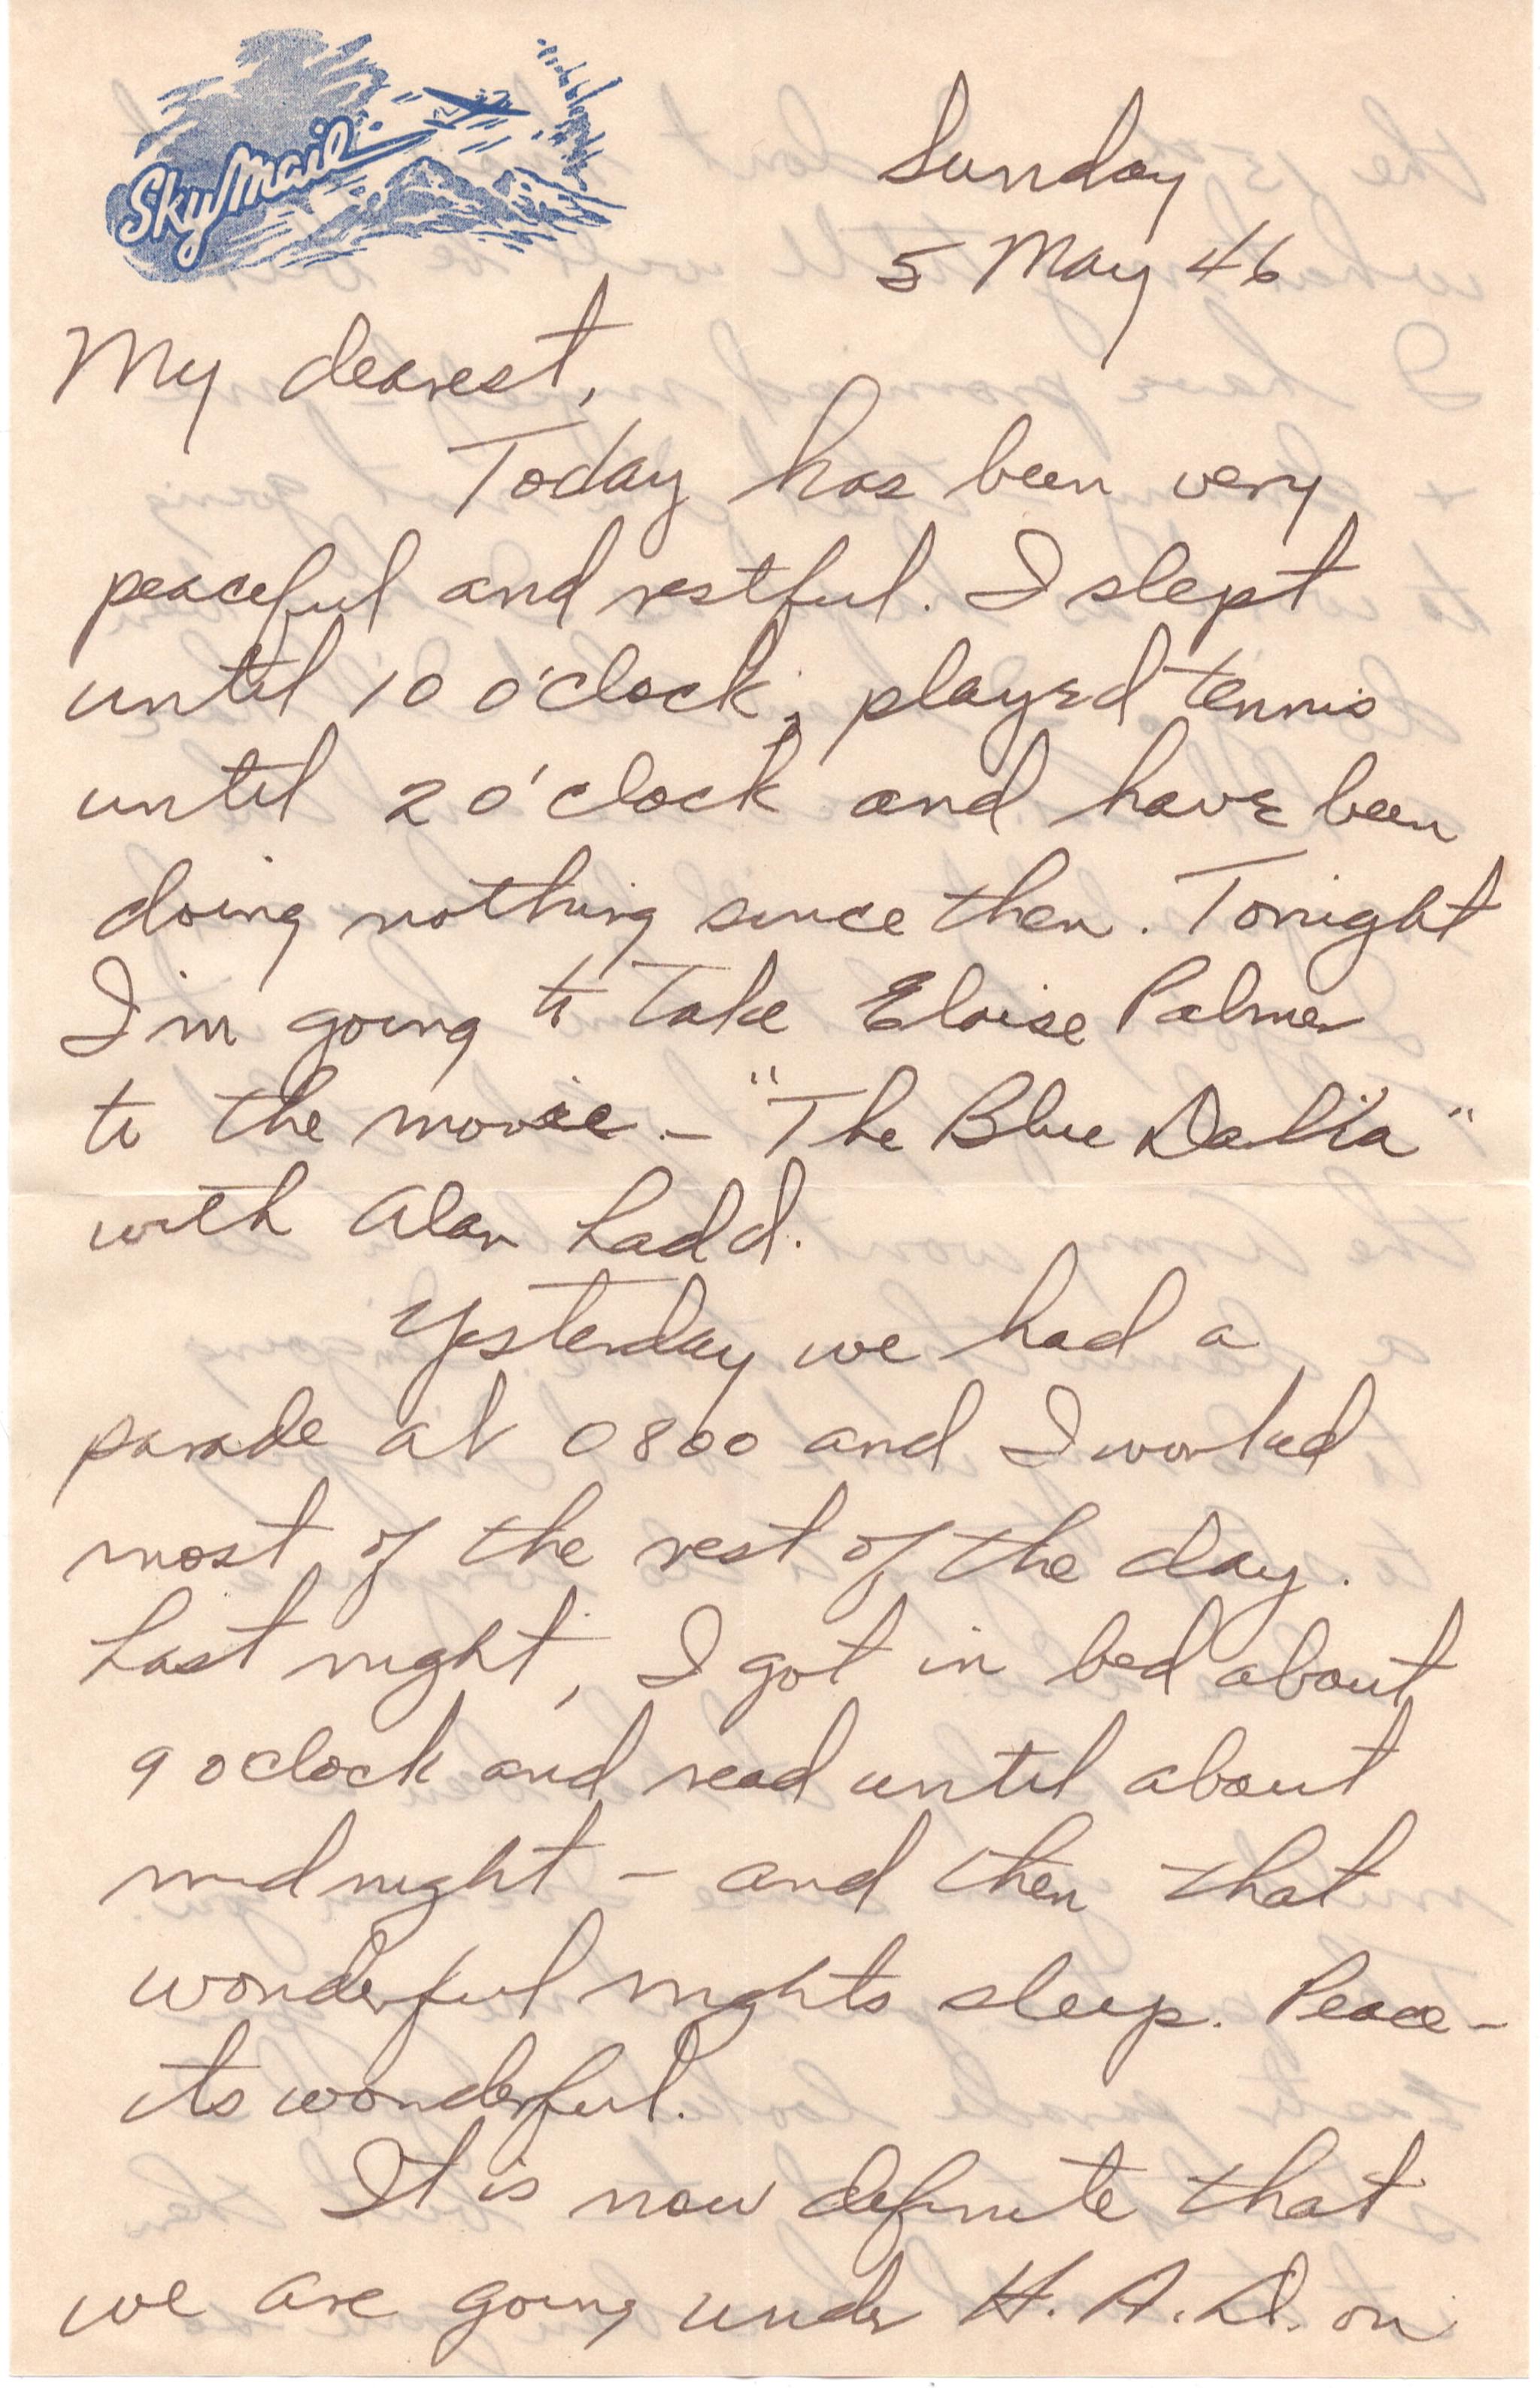 SkyMail
Sunday
5 May 46
My dearest,
Today has been very
peaceful and restful. I slept
until 10 o'clock, played tennis
until 2 o'clock and have been
doing nothing since then. Tonight
I'm going to take Eloise Palmer
to the movie - "The Blue Dalia"
with Alan Ladd.
Yesterday we had a
parade at 0800 and I worked
most of the rest of the day.
Last night, I got in bed about
9 oclock and read until about
midnight - and then that
wonderful nights sleep. Peace -
its wonderful.
It is now definite that
we are going under H.A.D. on